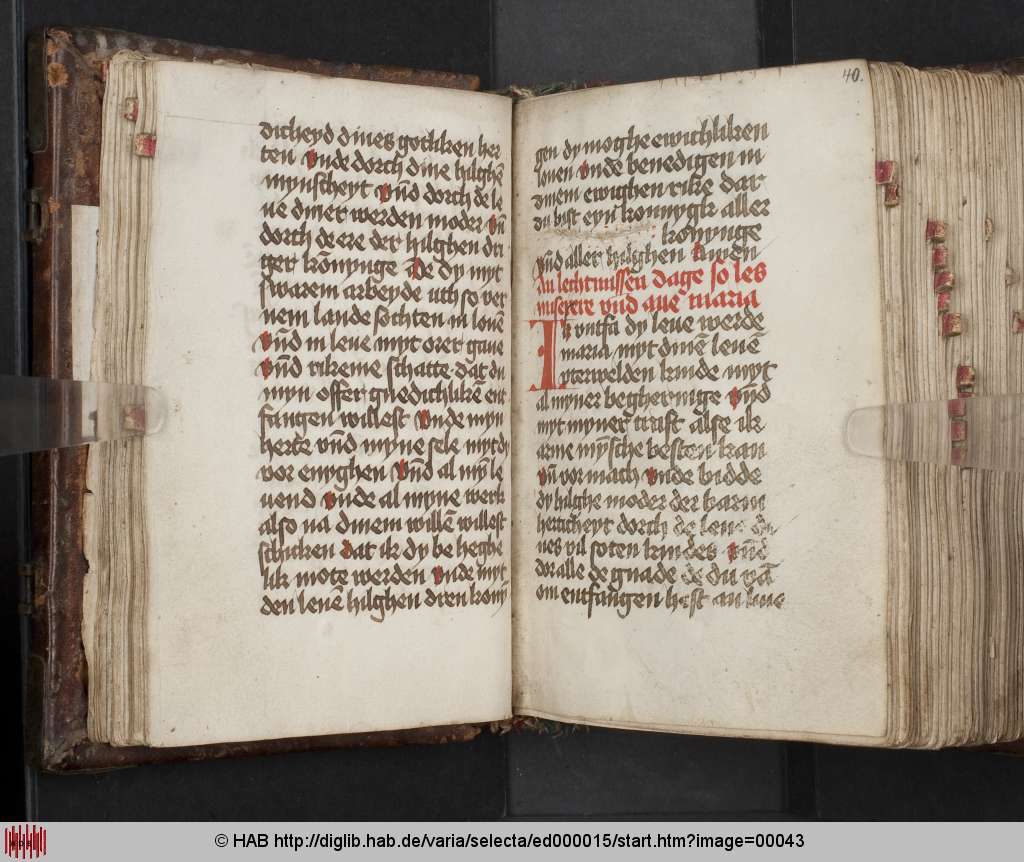 dicheyd dines gotliken her
ten vnde dorch dine hilghē
mynscheyt vnd dorch de le
ue diner werden moder vn̄
dorch de ere der hilghen dri
ger kōnynge de dy myt
swarem arbeyde uth so ver
nem lande sochten in louē
vn̄d in leue myt orer gaue
vn̄d rikeme schatte dat du
myn offer gnedichlikē ent
fangen willest vnde myn
herte vn̄d myne sele myt dy
vor enyghen vn̄d al mȳ le
uend vnde al myne werk
also na dinem willē willest
schicken dat ik dy be heghe
lik mote werden vnde myt
den leuē hilghen dren konȳ
40.
gen dy moghe ewichliken
louen vnde benedigen in
dinem ewighen rike dar
du bist eyn konnygk aller
konynge
vn̄d aller hilghen Amen
An lechtmissen dage so les
miserere vn̄d aue maria
Ik vntfa dy leue werde
maria myt dinē leuē
vterwelden kinde myt
al myner begheringe vn̄d
myt myner craft alse ik
arme mȳsche besten kan
vn̄ vor mach vnde bidde
dy hilghe moder der barm
herticheyt dorch de leue di
nes vil soten kindes vn̄d
dor alle de gnade de du vā
om entfangen hest an leue
© HAB http://diglib.hab.de/varia/selecta/ed000015/start.htm?image=00043